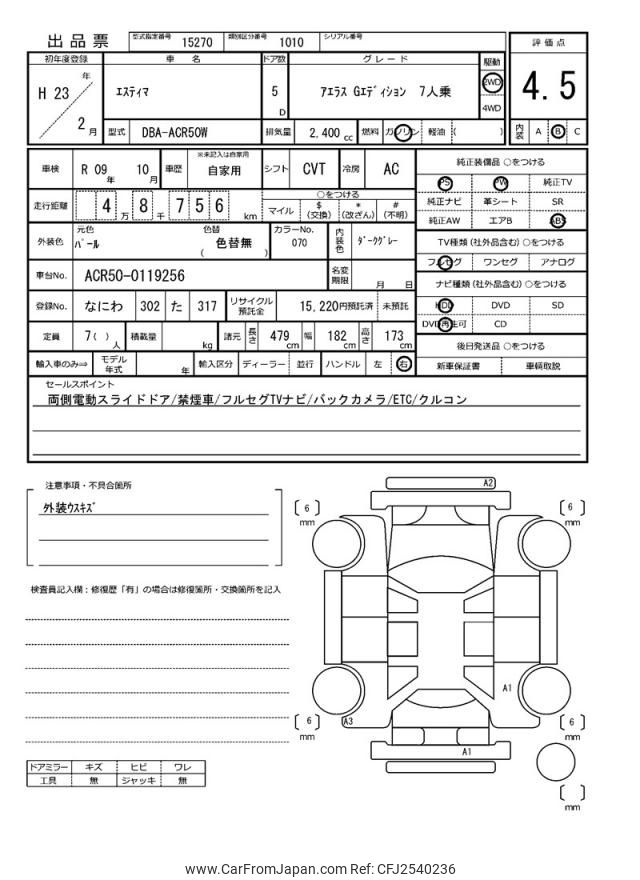 出品票
型式指定番号 15270 類別区分番号 1010 シリアル番号
評価点
初年度登録 車名 ドア数 グレード 駆動
H 23 年 2 月
エスティマ 5 D アエラス Gエディション 7人乗 2WD 4WD
4.5
型式 DBA-ACR50W 排気量 2,400 cc 燃料 ガソリン 軽油 ( )
内装 A B C
車検 R 09 年 10 月 車歴 ※未記入は自家用 自家用 シフト CVT 冷房 AC
純正装備品 ○をつける
PS PW 純正TV
走行距離 4 万 8 千 7 5 6 km
○をつける
マイル $ (交換) * (改ざん) # (不明)
純正ナビ 革シート SR
純正AW エアB ABS
外装色 元色 パール 色替 ( 色替無 ) カラーNo. 070 内装色 ダークグレー
TV種類 (社外品含む) ○をつける
フルセグ ワンセグ アナログ
車台No. ACR50-0119256 名変期限 月 日
ナビ種類 (社外品含む) ○をつける
登録No. なにわ 302 た 317 リサイクル預託金 15,220円預託済 未預託
HDD DVD SD
DVD再生可 CD
定員 7( ) 人 積載量 kg 諸元 長さ 479 cm 幅 182 cm 高さ 173 cm
後日発送品 ○をつける
輸入車のみ⇒ モデル年式 年 輸入区分 ディーラー 並行 ハンドル 左 右
新車保証書 車輌取説
セールスポイント
両側電動スライドドア/禁煙車/フルセグTVナビ/バックカメラ/ETC/クルコン
注意事項・不具合箇所
外装ウスキズ
検査員記入欄：修復歴「有」の場合は修復箇所・交換箇所を記入
A2
6 mm
6 mm
A1
6 mm
A3
6 mm
A1
mm
ドアミラー キズ ヒビ ワレ
工具 無 ジャッキ 無
www.CarFromJapan.com Ref: CFJ2540236